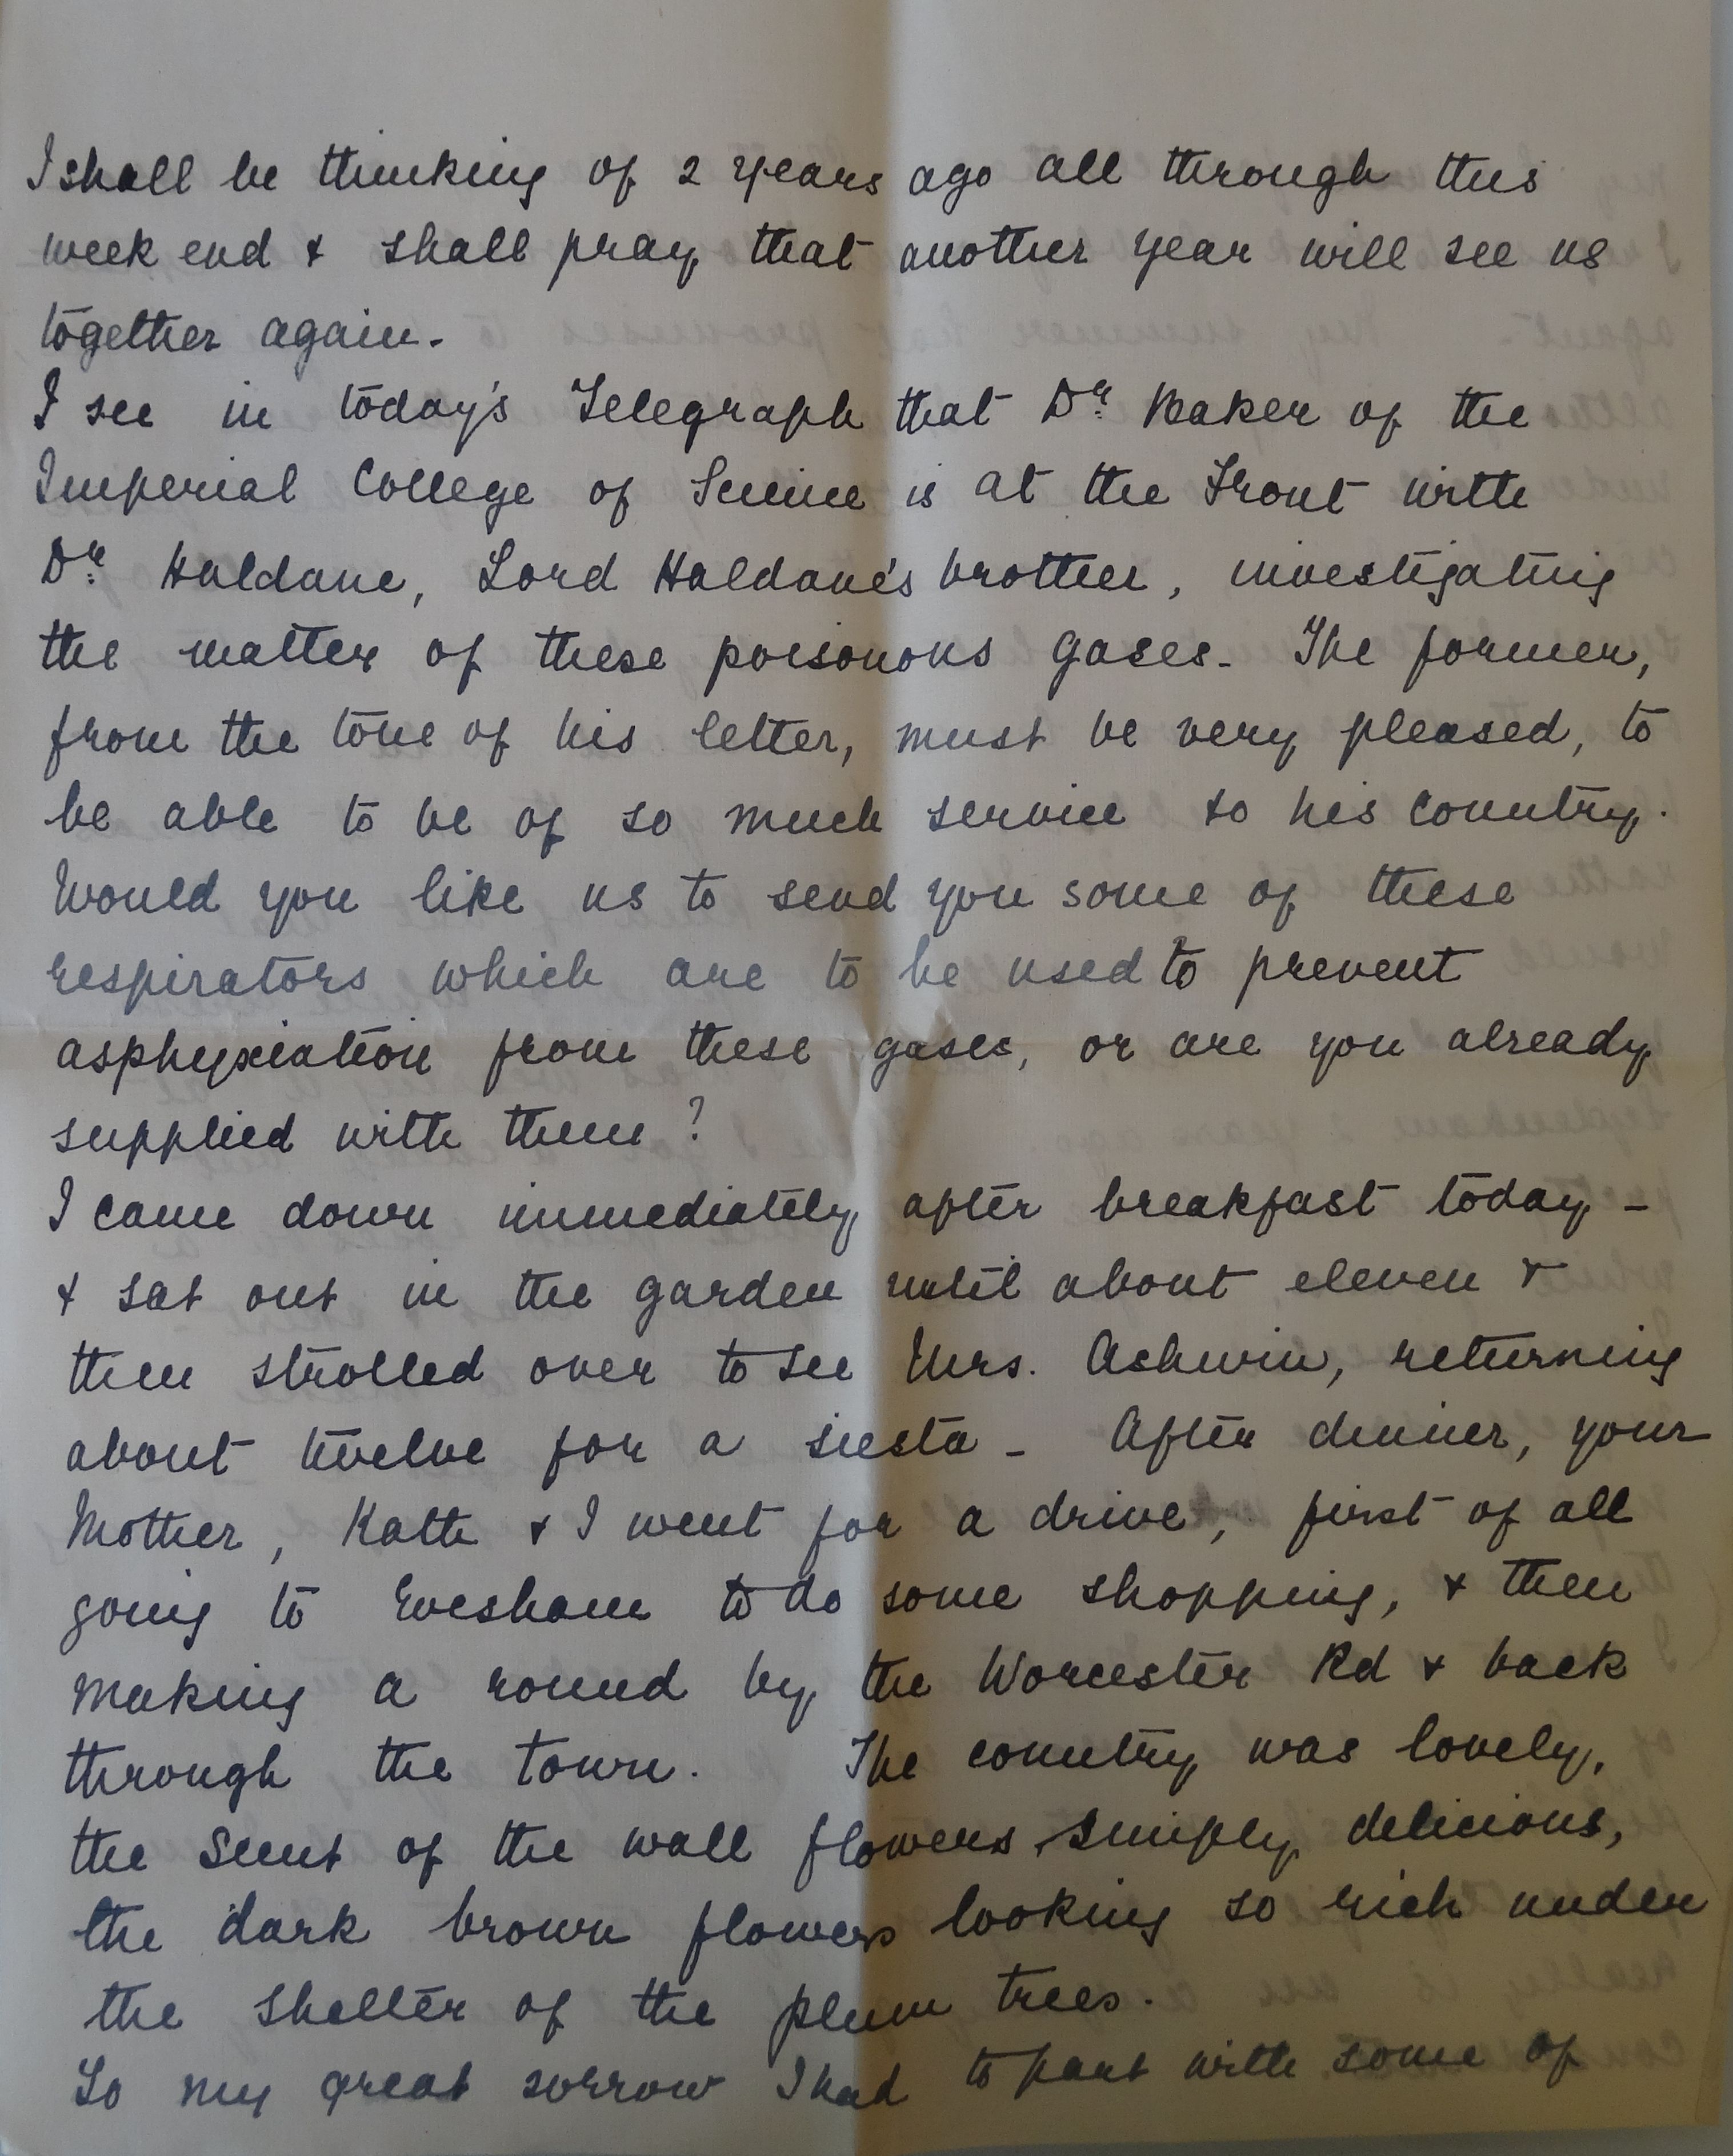 I shall be thinking of 2 years ago all through this
week end & shall pray that another year will see us
together again.
I see in today's Telegraph that Dr. Baker of the
Imperial College of Science is at the Front with
Dr. Haldane, Lord Haldane's brother, investigating
the matter of these poisonous gases. The former,
from the tone of his letter, must be very pleased, to
be able to be of so much service to his country.
Would you like us to send you some of these
respirators which are to be used to prevent
asphyxiation from these gases, or are you already
supplied with them?
I came down immediately after breakfast today -
& sat out in the garden until about eleven &
then strolled over to see Mrs. Ashwin, returning
about twelve for a siesta - After dinner, your
Mother, Kath & I went for a drive, first of all
going to Evesham to do some shopping, & then
making a round by the Worcester Rd & back
through the town. The country was lovely,
the scent of the wall flowers simply delicious,
the dark brown flowers looking so rich under
the shelter of the plum trees.
To my great sorrow I had to part with some of